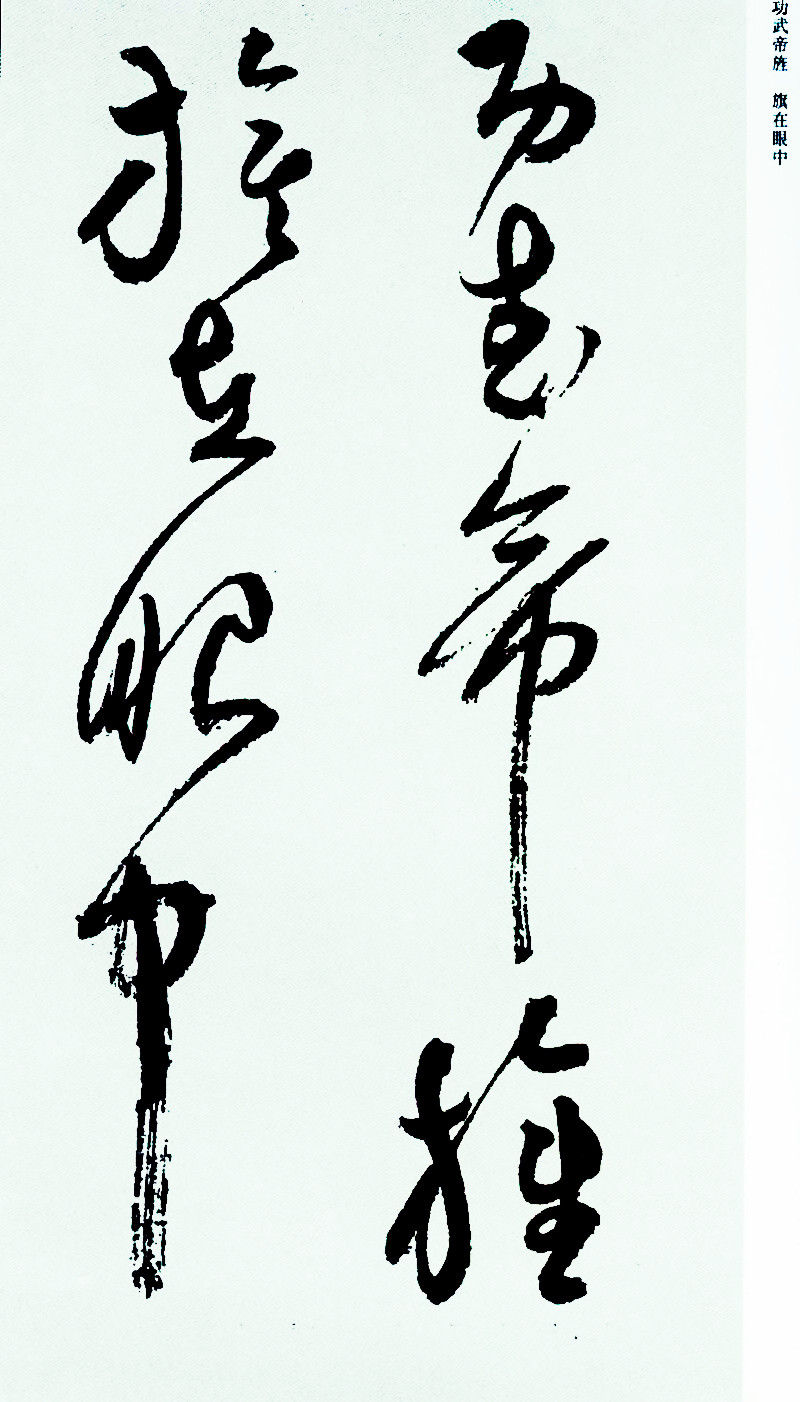 功武帝旌
旗在眼中
功武帝旌 旗在眼中